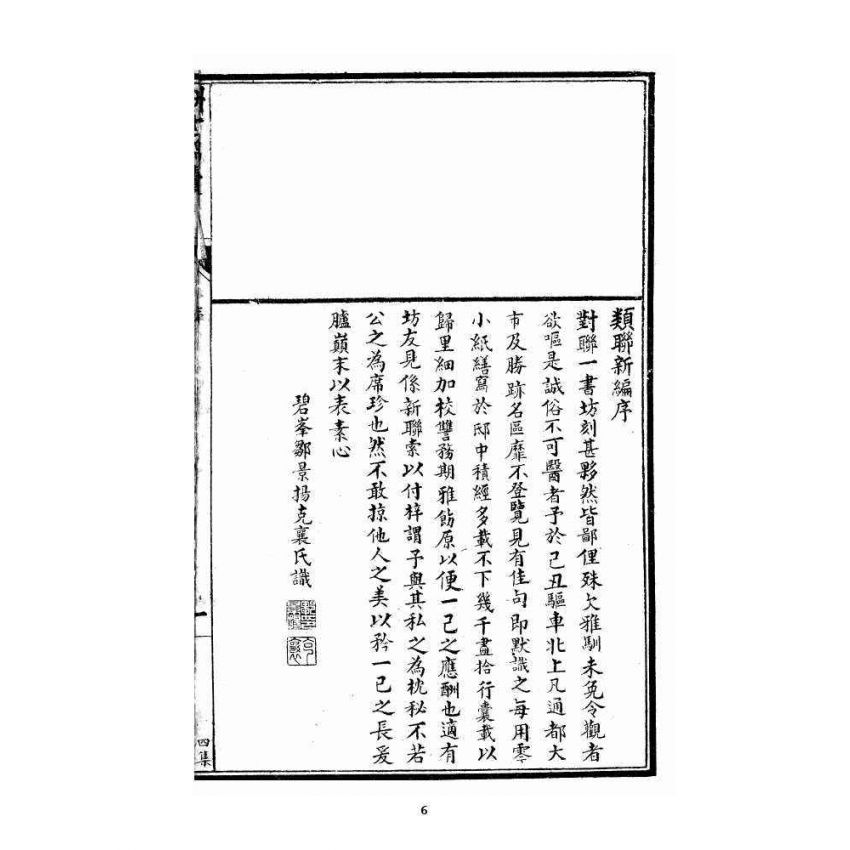 類聯新編序
對聯一書坊刻甚夥然皆鄙俚殊欠雅馴未免令觀者
欲嘔是誠俗不可醫者予於己丑驅車北上凡通都大
市及勝跡名區靡不登覽見有佳句即默識之每用零
小紙繕寫於邸中積經多載不下幾千盡拾行囊載以
歸里細加校讐務期雅飭原以便一己之應酬也適有
坊友見係新聯索以付梓謂予與其私之為枕秘不若
公之為席珍也然不敢掠他人之美以矜一己之長爰
臚巔末以表素心
碧峯鄒景揚克襄氏識
序
一
四集
6